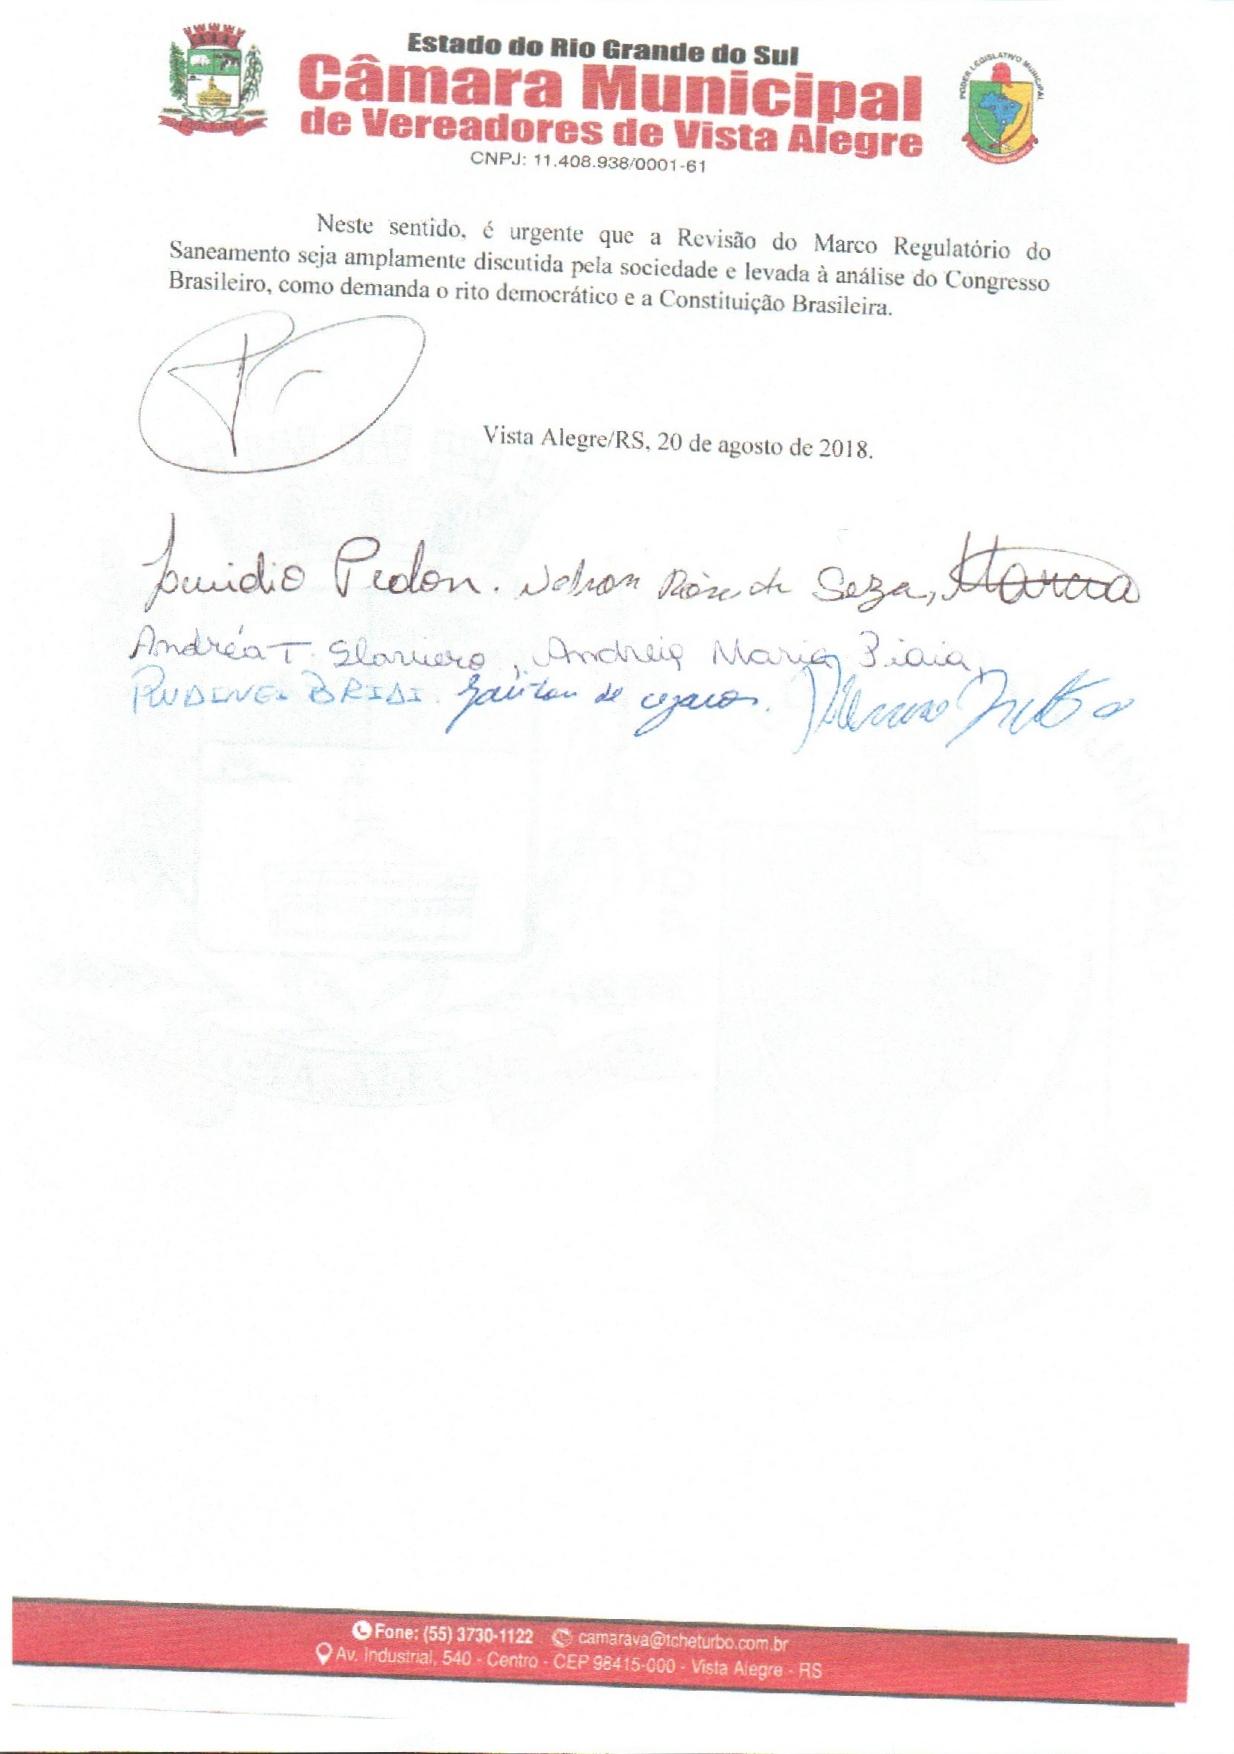 Estado do Rio Grande do Sul
Câmara Municipal
de Vereadores de Vista Alegre
CNPJ: 11.408.938/0001-61
PODER LEGISLATIVO MUNICIPAL
Neste sentido, é urgente que a Revisão do Marco Regulatório do
Saneamento seja amplamente discutida pela sociedade e levada à análise do Congresso
Brasileiro, como demanda o rito democrático e a Constituição Brasileira.
Vista Alegre/RS, 20 de agosto de 2018.
Pedon. Nelson de Marcia
Andréa T. , Andreia Maria Piaia,
BRIDI. de
Fone: (55) 3730-1122 camarava@tcheturbo.com.br
Av. Industrial, 540 - Centro - CEP 98415-000 - Vista Alegre - RS